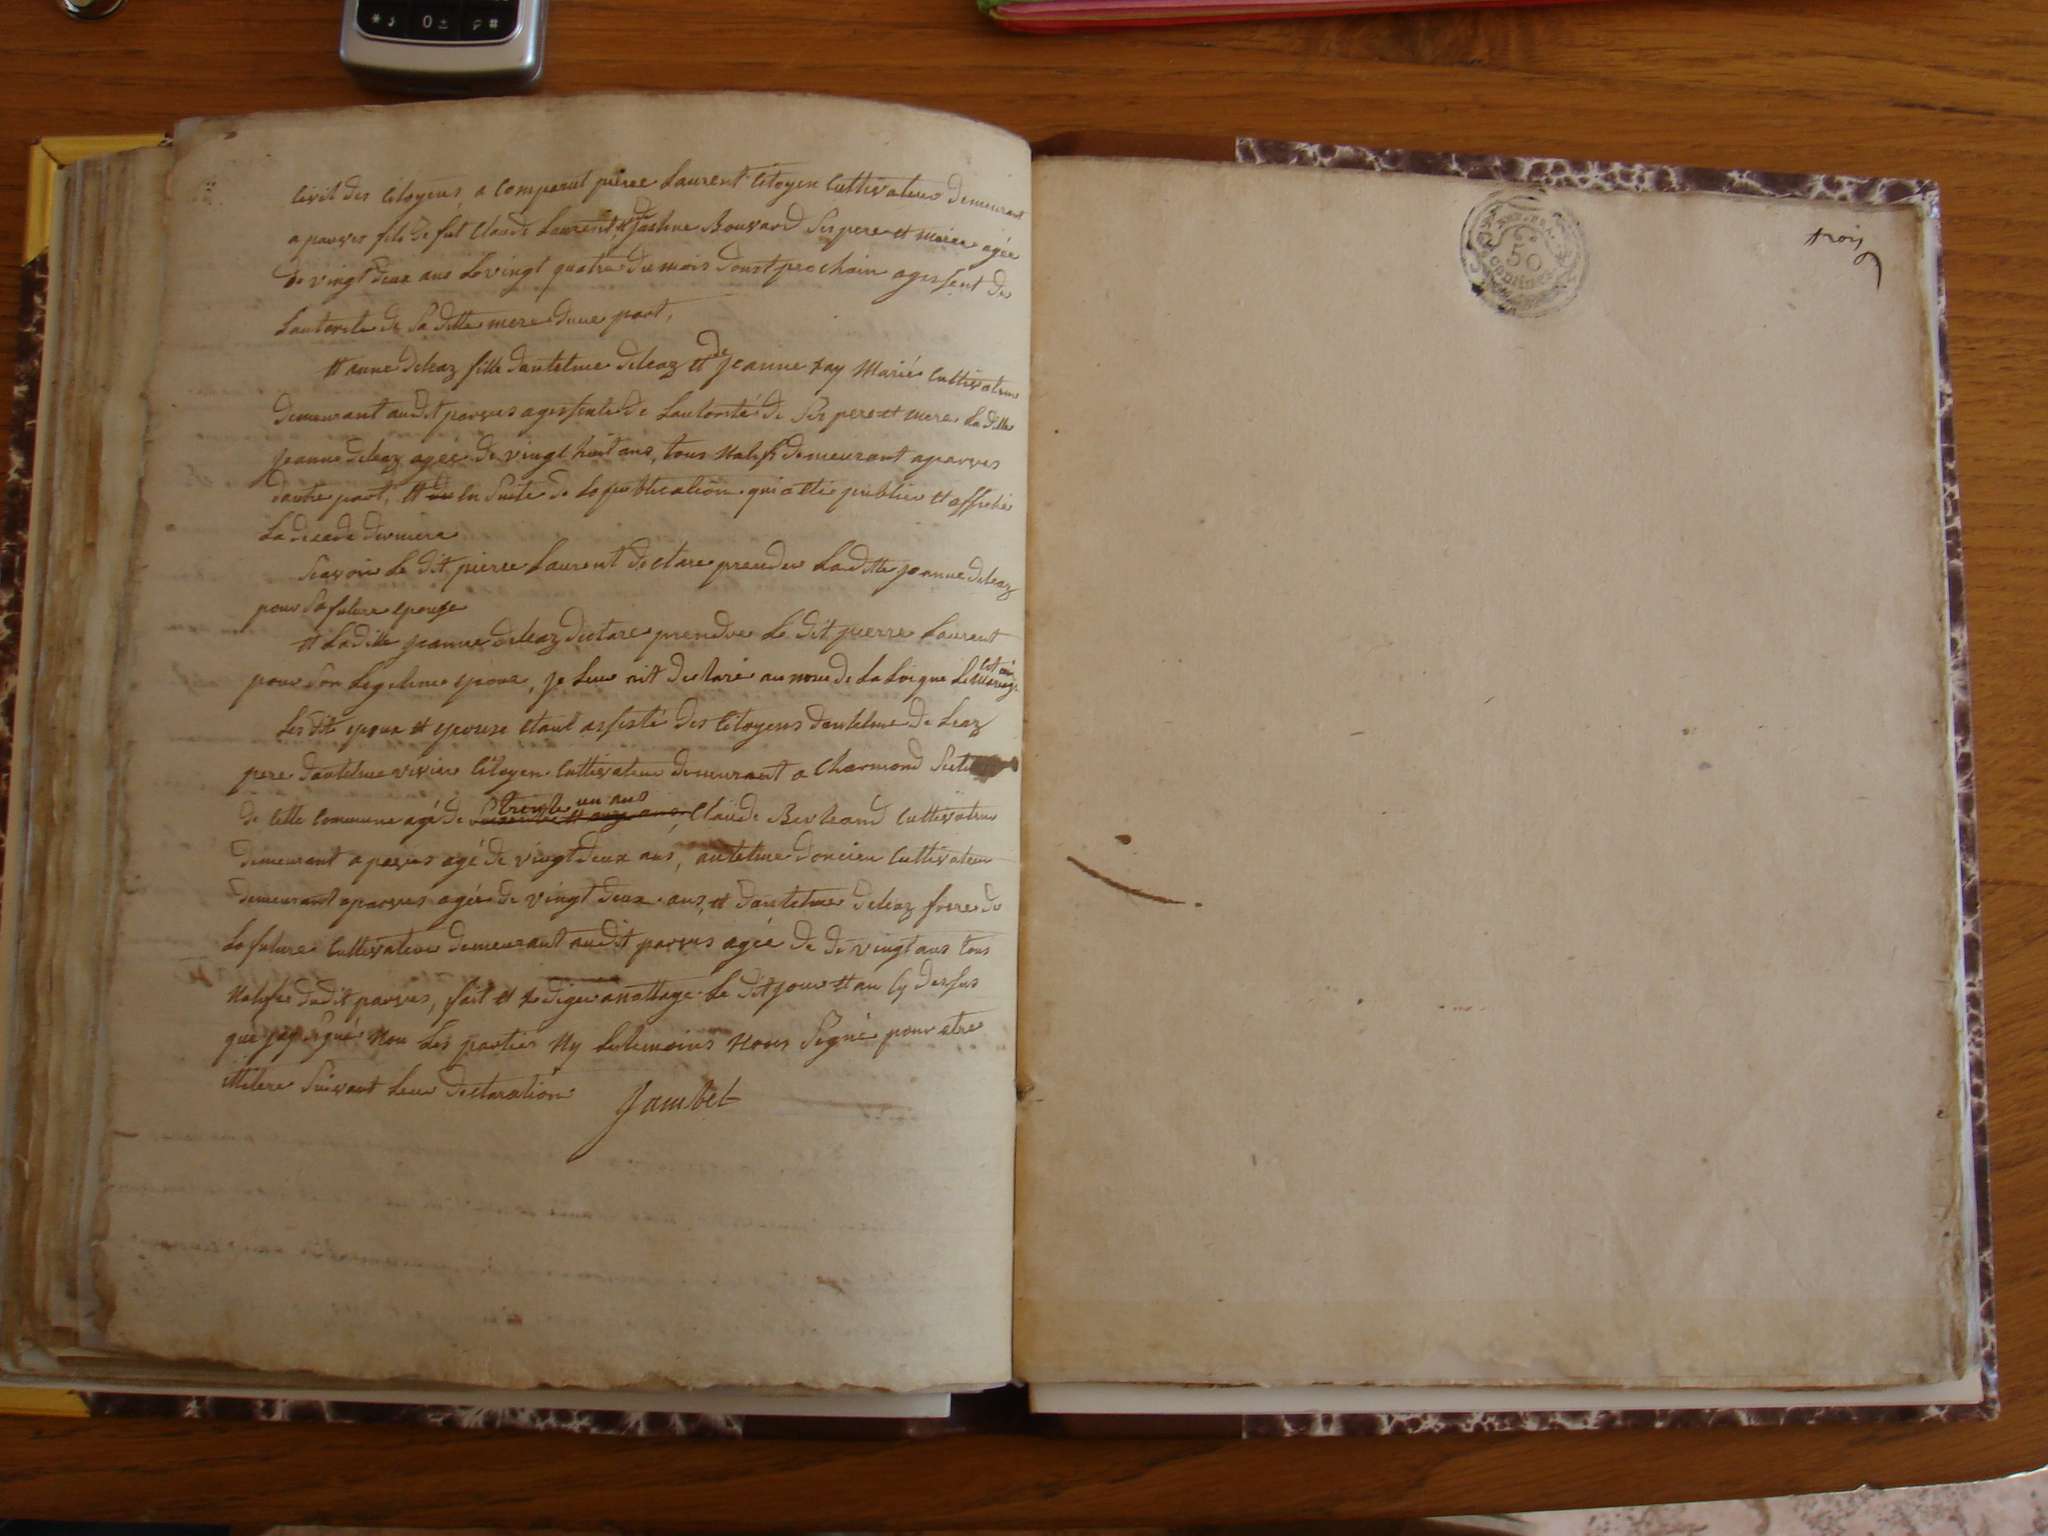 * 0 ± #
Civil des Citoyens, a comparut pierre Laurent Citoyen Cultivateur demeurant
a parves fils de fut Claude Laurent, et de Bouvard Ses pere et mere agée
de vingt deux ans le vingt quatre du mois doust prochain agissent de
Lautorite de Sa ditte mere dune part,
et anne deleaz fille dantelme deleaz et de jeanne ray Marié Cultivateur
demeurant audit parves agissente de Lautorité de Ses pere et mere La ditte
jeanne deleaz agee de vingt huit ans, tous Natifs demeurant a parves
dautre part, et en Suite de la publication qui a etté publier et affichée
La decade derniere
Scavoir Le dit pierre Laurent declare prendre La ditte jeanne deleaz
pour Sa future epouse
et La ditte jeanne deleaz declare prendre Le dit pierre Laurent
pour Son Legitime epoux, je Leur ait declaré au nom de La Loi que Le Mariage
Les dit epoux et epouse etant assisté des Citoyens dantelme de Leaz
pere dantelme vivier Citoyen Cultivateur demeurant a Charmond
de cette Commune agé de trente un ans, Claude Bertrand Cultivateur
demeurant a parves agé de vingt deux ans, antelme doncieu Cultivateur
demeurant a parves agée de vingt deux ans, et dantelme deleaz frere de
La future Cultivateur demeurant audit parves agée de de vingt ans tous
Natifs dudit parves, fait et rediger Le dit jour et an Cy dessus
que jay Signé Non Les parties Ny Letemoins Nous Signé pour etre
illetere Suivant Leur declaration Jambet
50
Centimes
trois